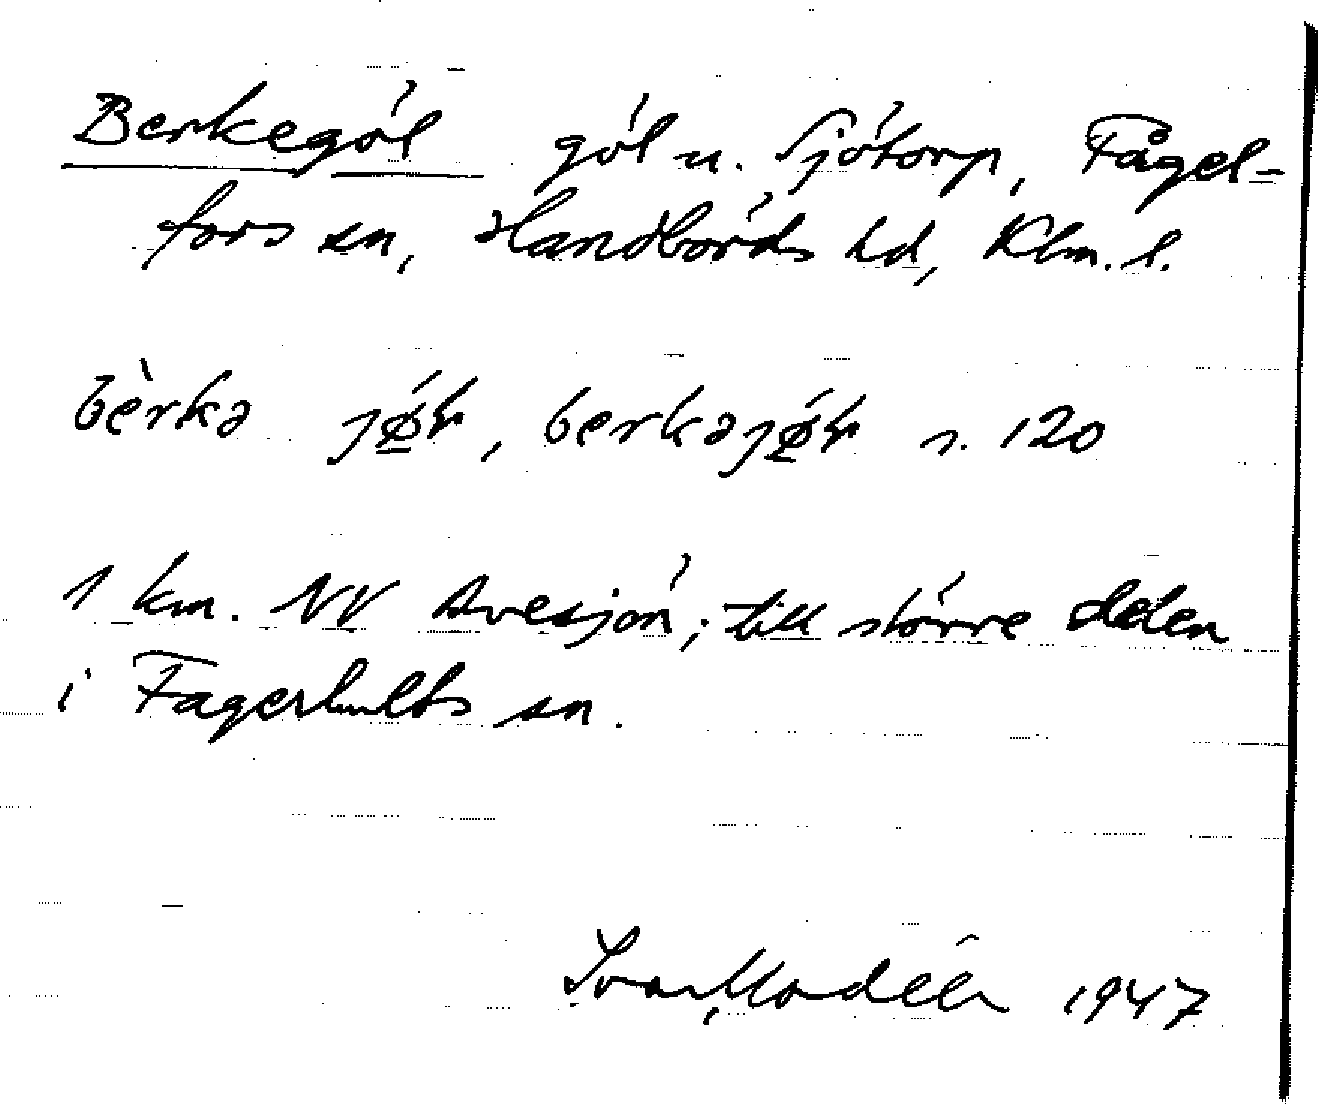 Berkegöl göl u. Sjötorp, Fågel-
fors sn, Handbörds hd, Klm. l.
bèrkə jøɫ, berkəjøɫ s. 120
1 km. NV Avesjön; till större delen
i Fagerhults sn.
Ivar Modéer 1947